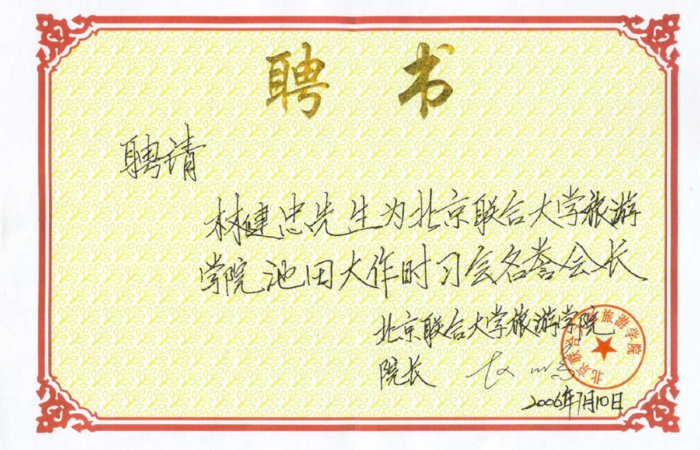 聘书
聘请
林健忠先生为北京联合大学旅游
学院池田大作时习会名誉会长
北京联合大学旅游学院
院长
2006年7月10日
北京联合大学旅游学院